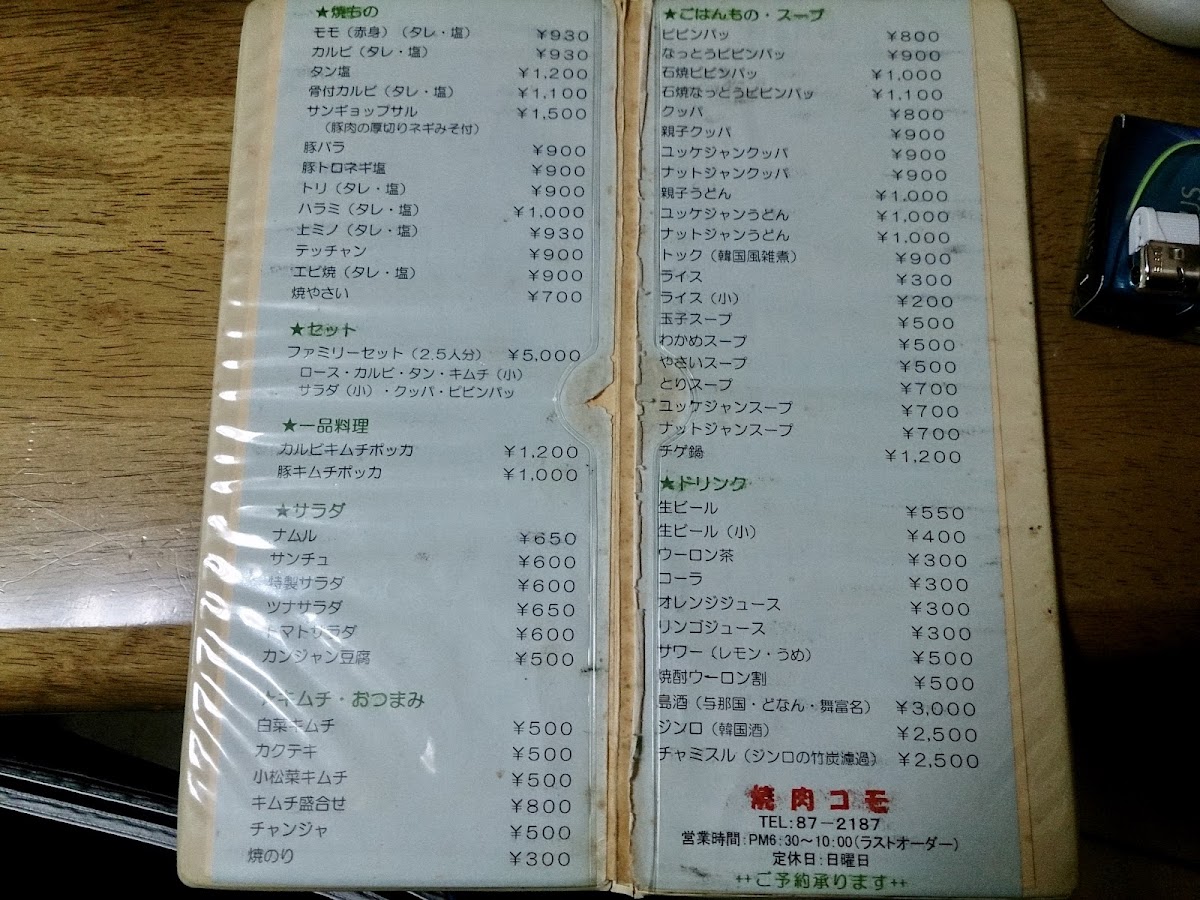 ★焼もの
モモ（赤身）（タレ・塩） ￥930
カルビ（タレ・塩） ￥930
タン塩 ￥1,200
骨付カルビ（タレ・塩） ￥1,100
サンギョップサル ￥1,500
（豚肉の厚切りネギみそ付）
豚バラ ￥900
豚トロネギ塩 ￥900
トリ（タレ・塩） ￥900
ハラミ（タレ・塩） ￥1,000
上ミノ（タレ・塩） ￥930
テッチャン ￥900
エビ焼（タレ・塩） ￥900
焼やさい ￥700
★セット
ファミリーセット（2.5人分） ￥5,000
ロース・カルビ・タン・キムチ（小）
サラダ（小）・クッパ・ビビンパッ
★一品料理
カルビキムチポッカ ￥1,200
豚キムチポッカ ￥1,000
★サラダ
ナムル ￥650
サンチュ ￥600
特製サラダ ￥600
ツナサラダ ￥650
トマトサラダ ￥600
カンジャン豆腐 ￥500
★キムチ・おつまみ
白菜キムチ ￥500
カクテキ ￥500
小松菜キムチ ￥500
キムチ盛合せ ￥800
チャンジャ ￥500
焼のり ￥300
★ごはんもの・スープ
ビビンパッ ￥800
なっとうビビンパッ ￥900
石焼ビビンパッ ￥1,000
石焼なっとうビビンパッ ￥1,100
クッパ ￥800
親子クッパ ￥900
ユッケジャンクッパ ￥900
ナットジャンクッパ ￥900
親子うどん ￥1,000
ユッケジャンうどん ￥1,000
ナットジャンうどん ￥1,000
トック（韓国風雑煮） ￥900
ライス ￥300
ライス（小） ￥200
玉子スープ ￥500
わかめスープ ￥500
やさいスープ ￥500
とりスープ ￥700
ユッケジャンスープ ￥700
ナットジャンスープ ￥700
チゲ鍋 ￥1,200
★ドリンク
生ビール ￥550
生ビール（小） ￥400
ウーロン茶 ￥300
コーラ ￥300
オレンジジュース ￥300
リンゴジュース ￥300
サワー（レモン・うめ） ￥500
焼酎ウーロン割 ￥500
島酒（与那国・どなん・舞富名） ￥3,000
ジンロ（韓国酒） ￥2,500
チャミスル（ジンロの竹炭濾過） ￥2,500
焼肉コモ
TEL:87－2187
営業時間:PM6:30～10:00(ラストオーダー)
定休日:日曜日
++ご予約承ります++